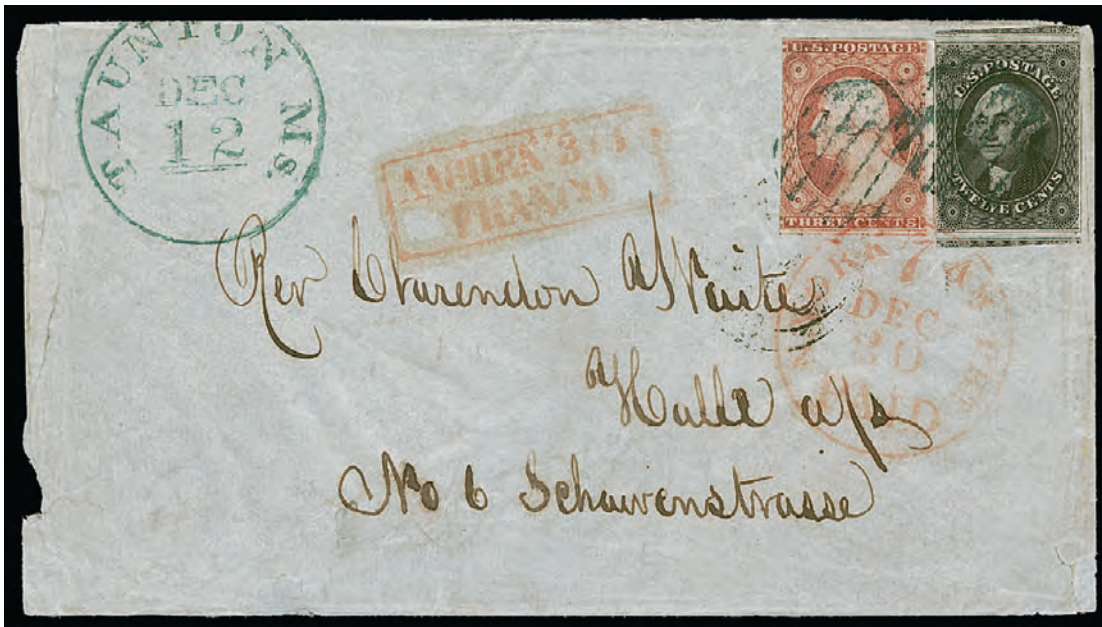 TAUNTON Ms.
DEC
12
U.S. POSTAGE
THREE CENTS
U.S. POSTAGE
TWELVE CENTS
FRANCO
7
DEC
20
PAID
Rev Clarendon Waite
Halle a/s
No 6 Schauvenstrasse